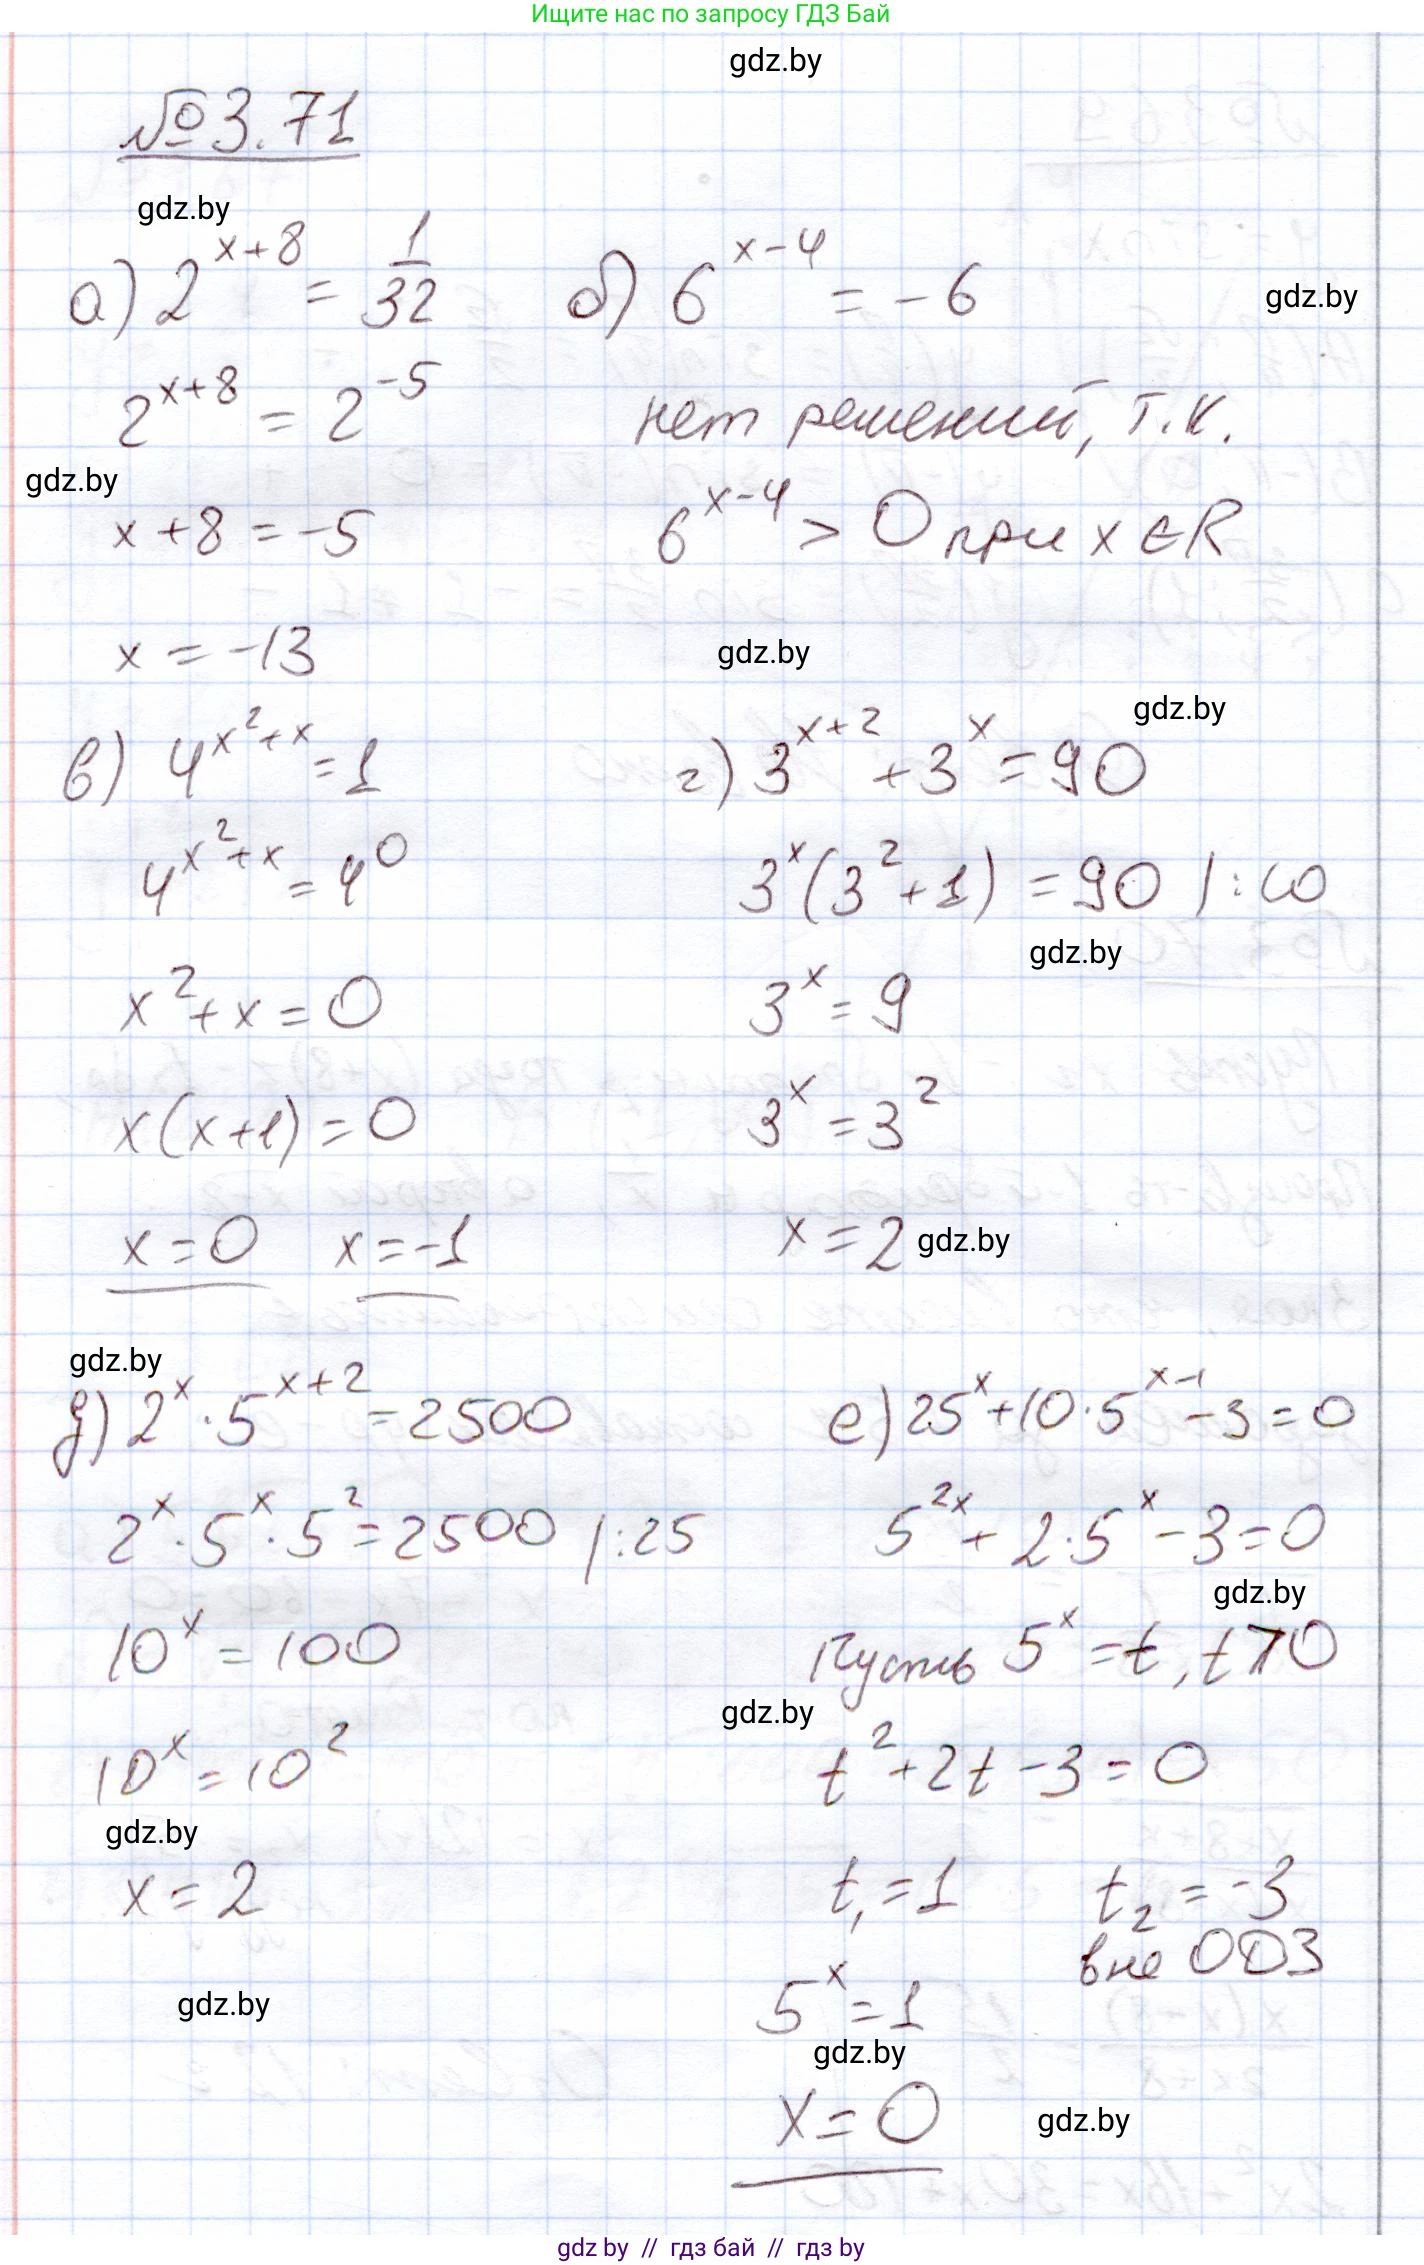 Ищите нас по запросу ГДЗ Бай
gdz.by
№3.71
gdz.by
а) 2^{x+8} = 1/32
б) 6^{x-4} = -6
gdz.by
2^{x+8} = 2^{-5}
нет решений, т.к.
gdz.by
x+8 = -5
6^{x-4} > 0 при x ∈ R
x = -13
gdz.by
gdz.by
в) 4^{x²+x} = 1
г) 3^{x+2} + 3^x = 90
4^{x²+x} = 4^0
3^x(3²+1) = 90 |:10
gdz.by
x²+x = 0
3^x = 9
x(x+1) = 0
3^x = 3²
x = 0 x = -1
x = 2
gdz.by
gdz.by
д) 2^x · 5^{x+2} = 2500
е) 25^x + 10·5^{x-1} - 3 = 0
2^x · 5^x · 5² = 2500 |:25
5^{2x} + 2·5^x - 3 = 0
gdz.by
10^x = 100
Пусть 5^x = t, t>0
gdz.by
10^x = 10²
t² + 2t - 3 = 0
gdz.by
x = 2
t₁ = 1 t₂ = -3
вне ОДЗ
gdz.by
5^x = 1
gdz.by
x = 0
gdz.by
gdz.by // гдз бай // гдз by